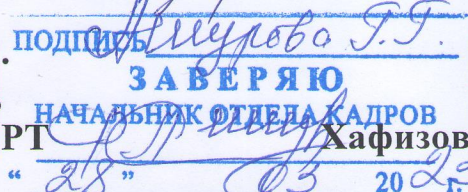 ПОДПИСЬ Ашурова Г.Г.
ЗАВЕРЯЮ
НАЧАЛЬНИК ОТДЕЛА КАДРОВ
РТ Хафизов
“ 28 ” 03 20 г.